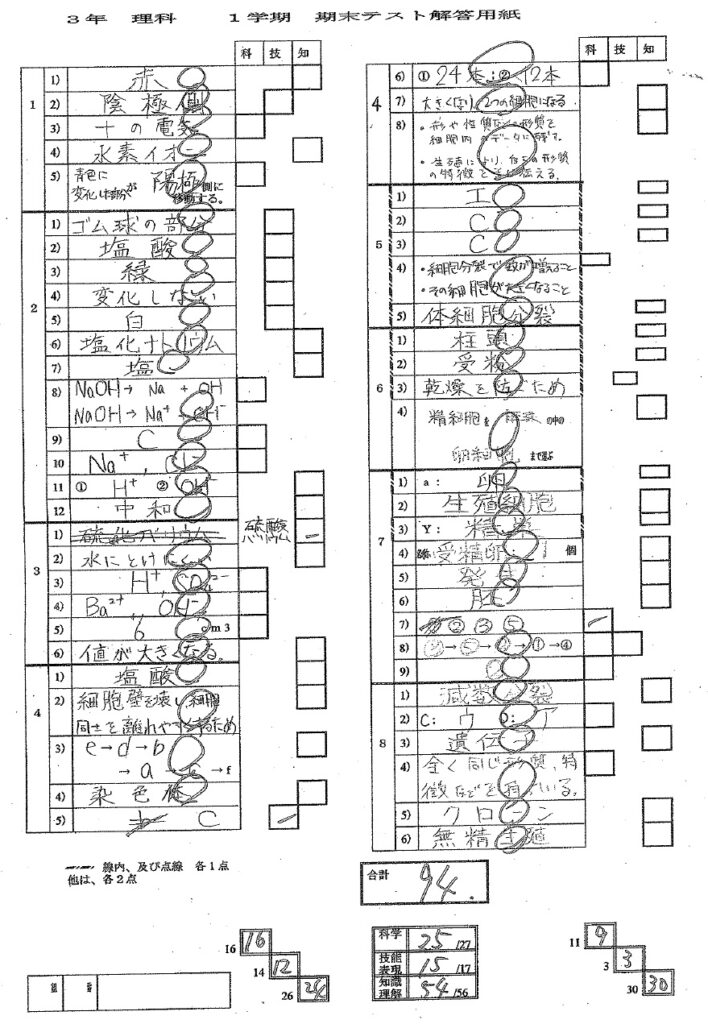 3年 理科 1学期 期末テスト解答用紙
科 技 知
1
1) 赤
2) 陰極側
3) +の電気
4) 水素イオン
5) 青色に変化した部分が 陽極側に移動する。
2
1) ゴム球の部分
2) 塩酸
3) 緑
4) 変化しない
5) 白
6) 塩化ナトリウム
7) 塩
8) NaOH → Na + OH
NaOH → Na⁺ + OH⁻
9) C
10 Na⁺, Cl⁻
11 ① H⁺ ② OH⁻
12 中和
3
1) 硫化バリウム 硫酸バリウム
2) 水にとけにくい
3) H⁺, SO₄²⁻
4) Ba²⁺, OH⁻
5) 6 cm3
6) 値が大きくなる。
4
1) 塩酸
2) 細胞壁を壊し、細胞
同士を離れやすくするため
3) e→d→b
→a→c→f
4) 染色体
5) C
線内、及び点線 各1点
他は、各2点
科 技 知
4
6) ① 24本 ② 12本
7) 大きくなり、2つの細胞になる
8) ・形や性質などの形質を
細胞内のデータに残す。
・生殖により、自らの形質
の特徴を子に伝える。
5
1) エ
2) C
3) C
4) ・細胞分裂で数が増えること
・その細胞が大きくなること
5) 体細胞分裂
6
1) 柱頭
2) 受粉
3) 乾燥を防ぐため
4) 精細胞を 胚珠 の中の
卵細胞 まで運ぶ
7
1) a: 卵
2) 生殖細胞
3) Y: 精巣
4) 受精卵 1 個
5) 発生
6) 胚
7) ② ③ ⑤
8) →⑤→ →①→④
9)
8
1) 減数分裂
2) C: ウ D: ア
3) 遺伝子
4) 全く同じ形質、特
徴などを有している。
5) クローン
6) 無精生殖
合計 94.
16 16
14 12
26 24
科学 25 /27
技能表現 15 /17
知識理解 54 /56
11 9
3 3
30 30